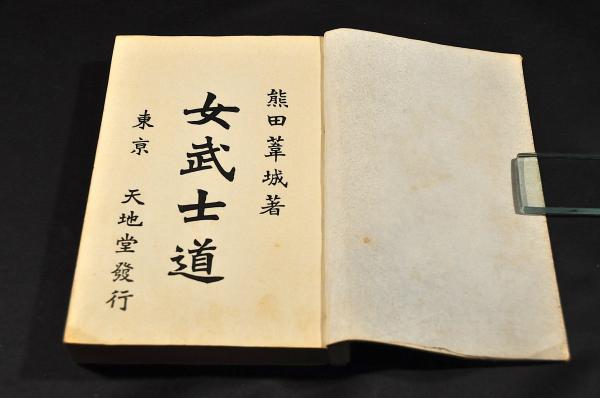 熊田葦城著
女武士道
東京 天地堂發行